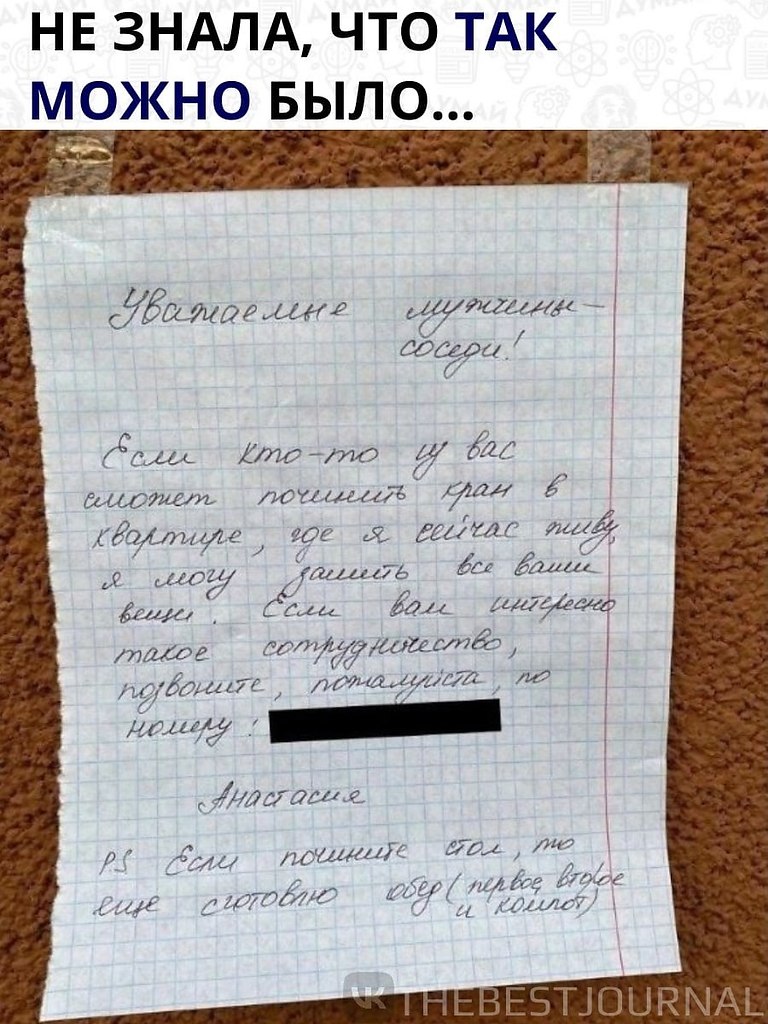 НЕ ЗНАЛА, ЧТО ТАК
МОЖНО БЫЛО...
Уважаемые мужчины-
соседи!
Если кто-то из вас
сможет починить кран в
квартире, где я сейчас живу,
я могу зашить все ваши
вещи. Если вам интересно
такое сотрудничество,
позвоните, пожалуйста, по
номеру:
Анастасия
PS Если почините стол, то
еще сготовлю обед (первое, второе
и компот)
THEBESTJOURNAL